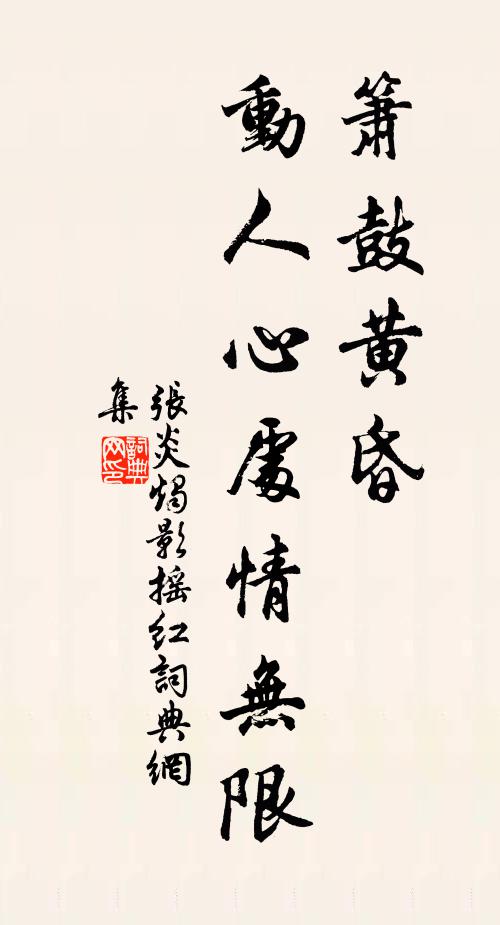 簫鼓黃昏
動人心處情無限
張炎燭影搖紅詞典網
集
詞典网印